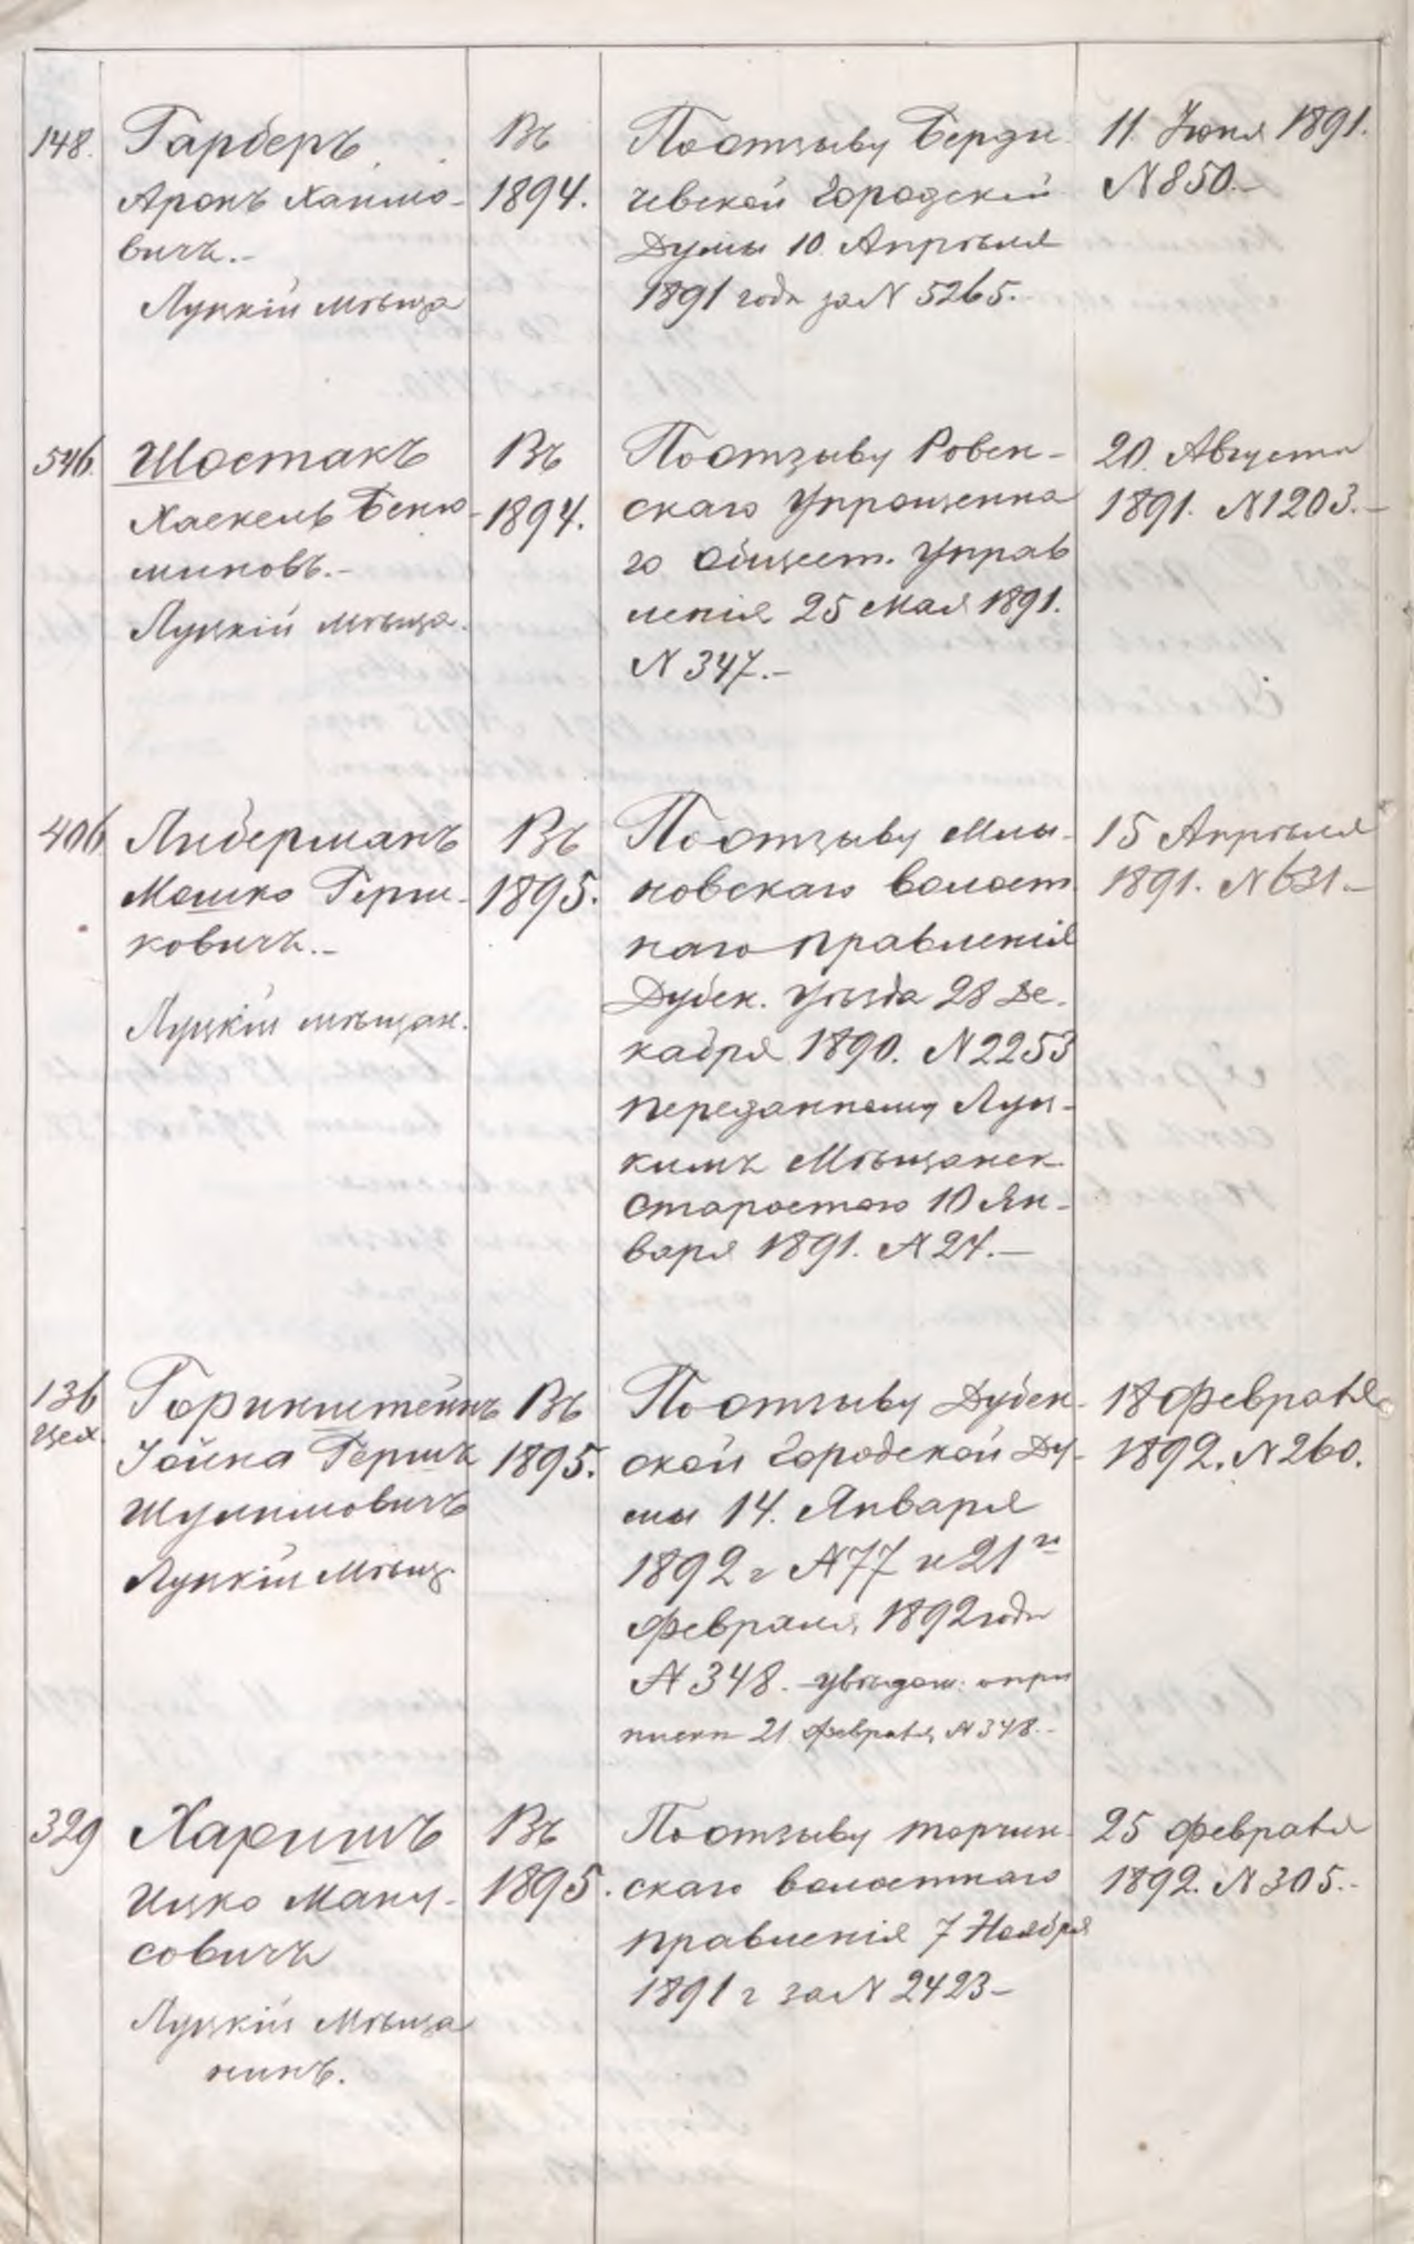 148.
Гарберъ
Аронъ Хаимо-
вичъ.-
Луцкій мѣща
Въ
1894.
По отзыву Берди-
чевской Городской
Думы 10 Апрѣля
1891 года за N 5265.
11 Іюня 1891.
N 850.-
546.
Шостакъ
Хаскель Беню-
миновъ.-
Луцкій мѣща.
Въ
1894.
По отзыву Ровен-
скаго Упрощенна
го Общест. Управ
ленія 25 Мая 1891.
N 347.-
20. Августа
1891. N 1203.-
406.
Либерманъ
Мошко Герш-
ковичъ.-
Луцкій мѣщан.
Въ
1895.
По отзыву Млы-
новскаго волост
наго правленія
Дубен. Уѣзда 28 Де-
кабря 1890. N 2253
переданному Луц-
кимъ Мѣщанск.
Старостою 10 Ян-
варя 1891. N 24.-
15 Апрѣля
1891. N 631.-
136
цех.
Горикштейнъ
Іойна Гершъ
Шулимовичъ
Луцкій Мѣщ.
Въ
1895.
По отзыву Дубен-
ской Городской Ду-
мы 14. Января
1892 г N 77 и 21го
февраля 1892 года
N 348. увѣдом: о при
писки 21 февраля N 348.-
18 февраля
1892. N 260.
329
Харишъ
ИцкоМану-
совичъ
Луцкій Мѣща
нинъ.
Въ
1895.
По отзыву торчин-
скаго волостнаго
правленія 7 Ноября
1891 г за N 2423-
25 февраля
1892. N 305.-